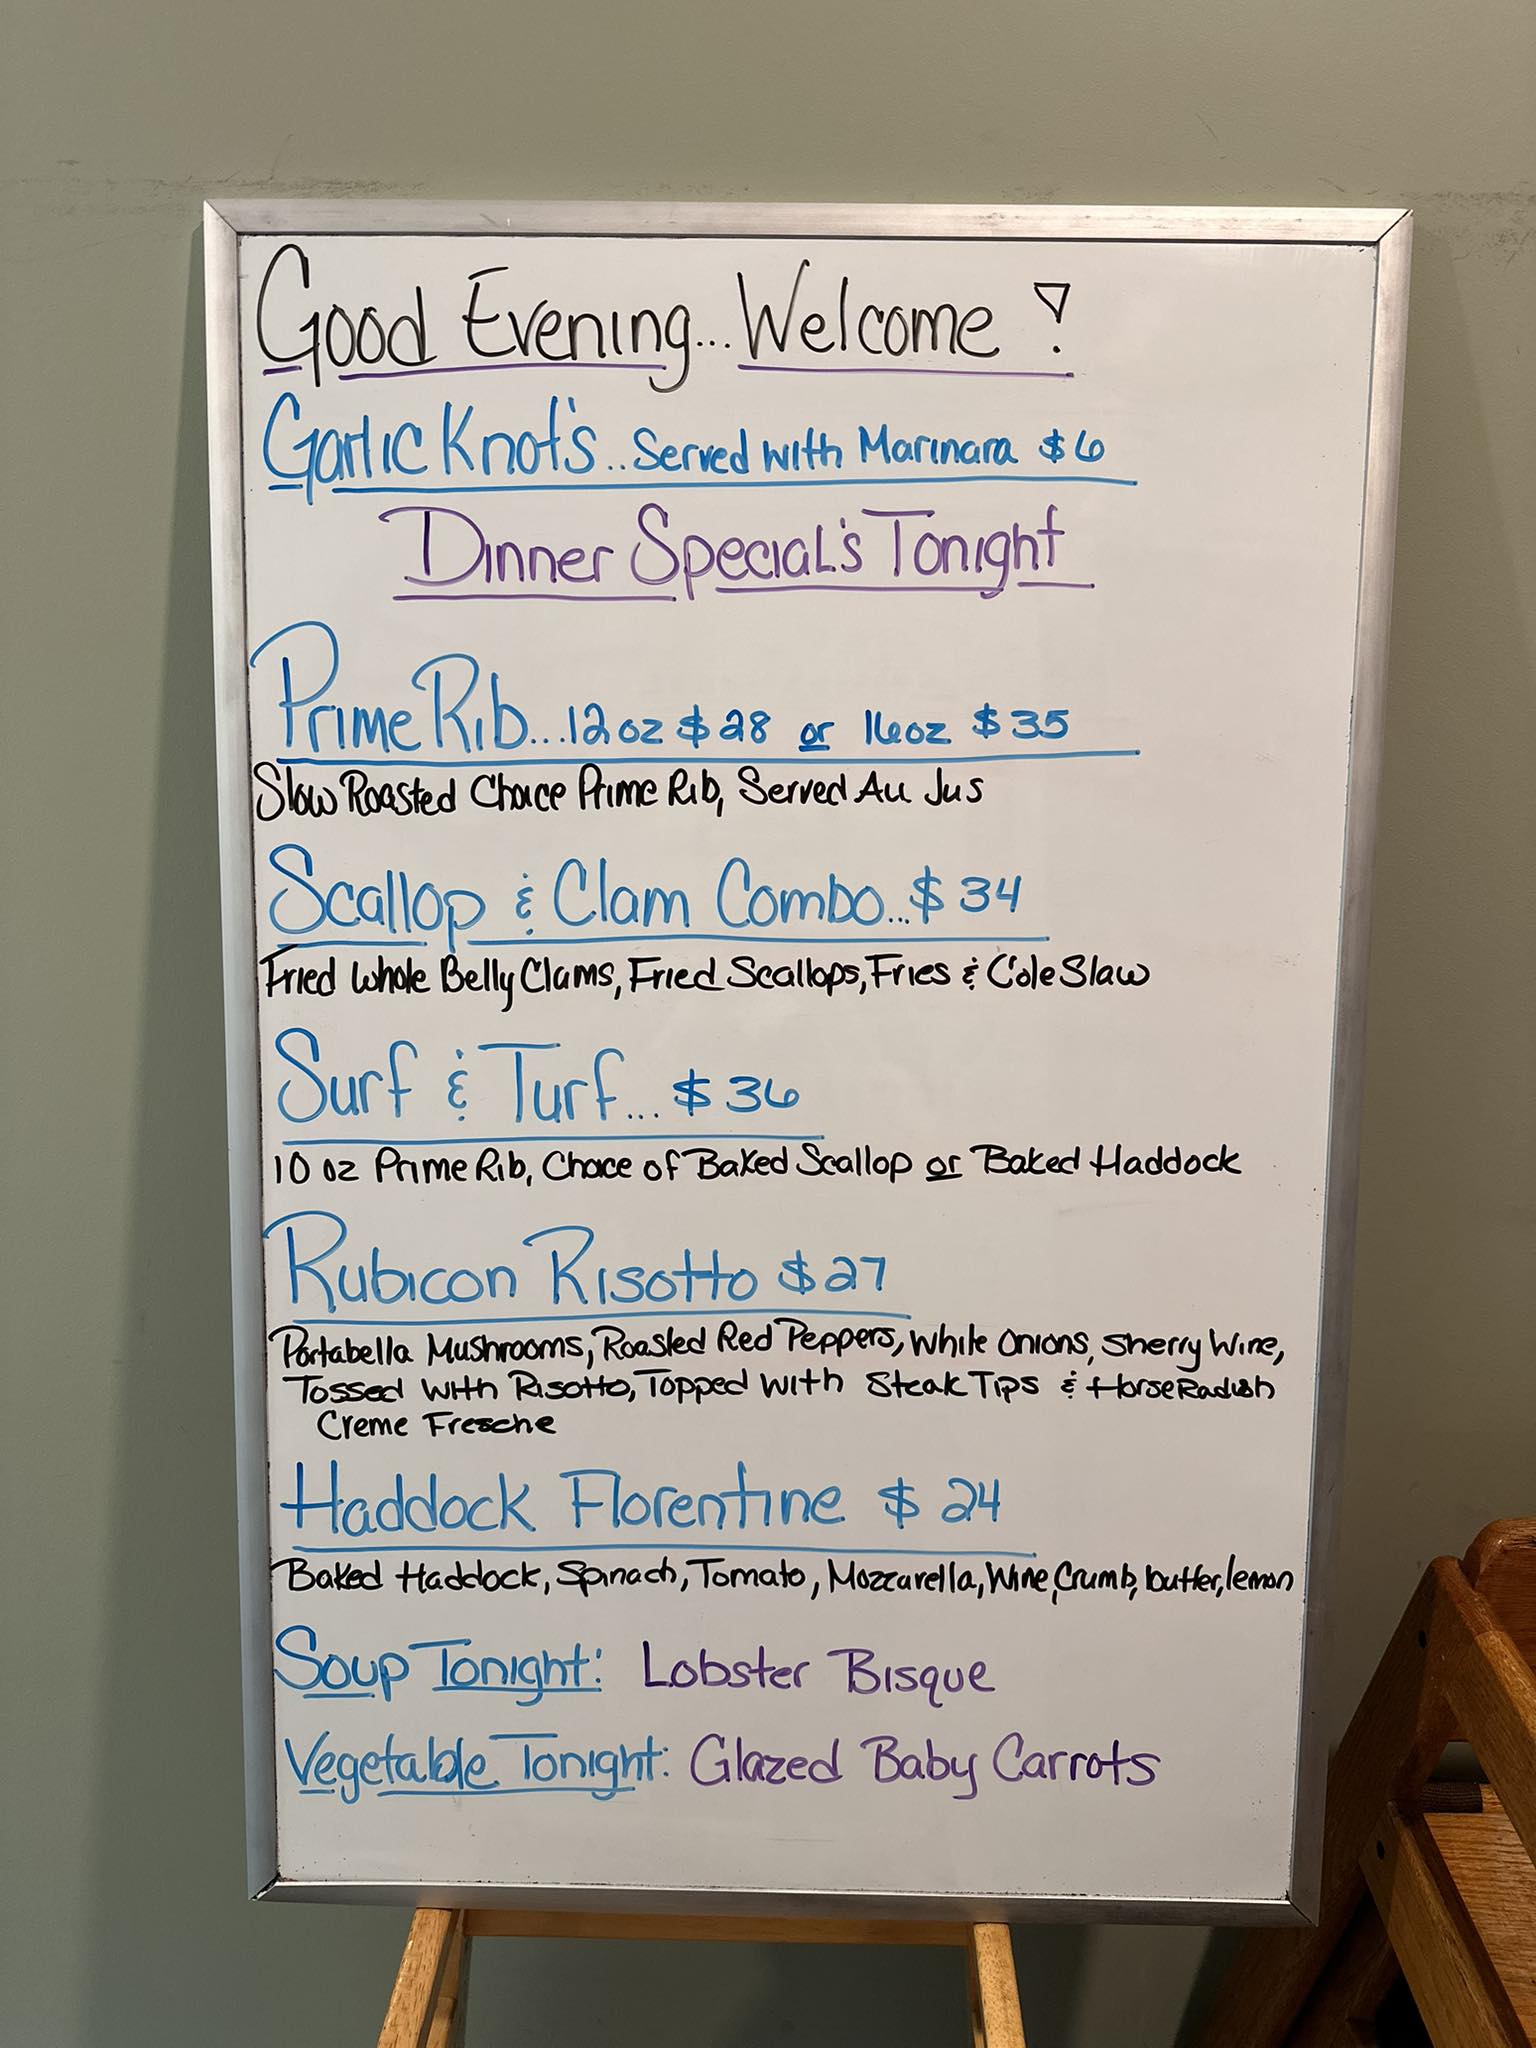 Good Evening... Welcome!
Garlic Knot's.. Served with Marinara $6
Dinner Special's Tonight
Prime Rib...12oz $28 or 16oz $35
Slow Roasted Choice Prime Rib, Served Au Jus
Scallop & Clam Combo...$34
Fried Whole Belly Clams, Fried Scallops, Fries & Cole Slaw
Surf & Turf... $36
10 oz Prime Rib, Choice of Baked Scallop or Baked Haddock
Rubicon Risotto $27
Portabella Mushrooms, Roasted Red Peppers, White Onions, Sherry Wine,
Tossed with Risotto, Topped with Steak Tips & HorseRadish
Creme Fresche
Haddock Florentine $24
Baked Haddock, Spinach, Tomato, Mozzarella, Wine, Crumb, butter, lemon
Soup Tonight: Lobster Bisque
Vegetable Tonight: Glazed Baby Carrots